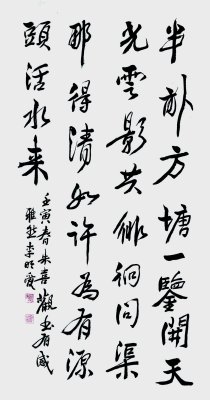 半畝方塘一鑒開天
光雲影共徘徊問渠
那得清如許為有源
頭活水来
壬寅春朱喜觀書有感
雅慧李明愛